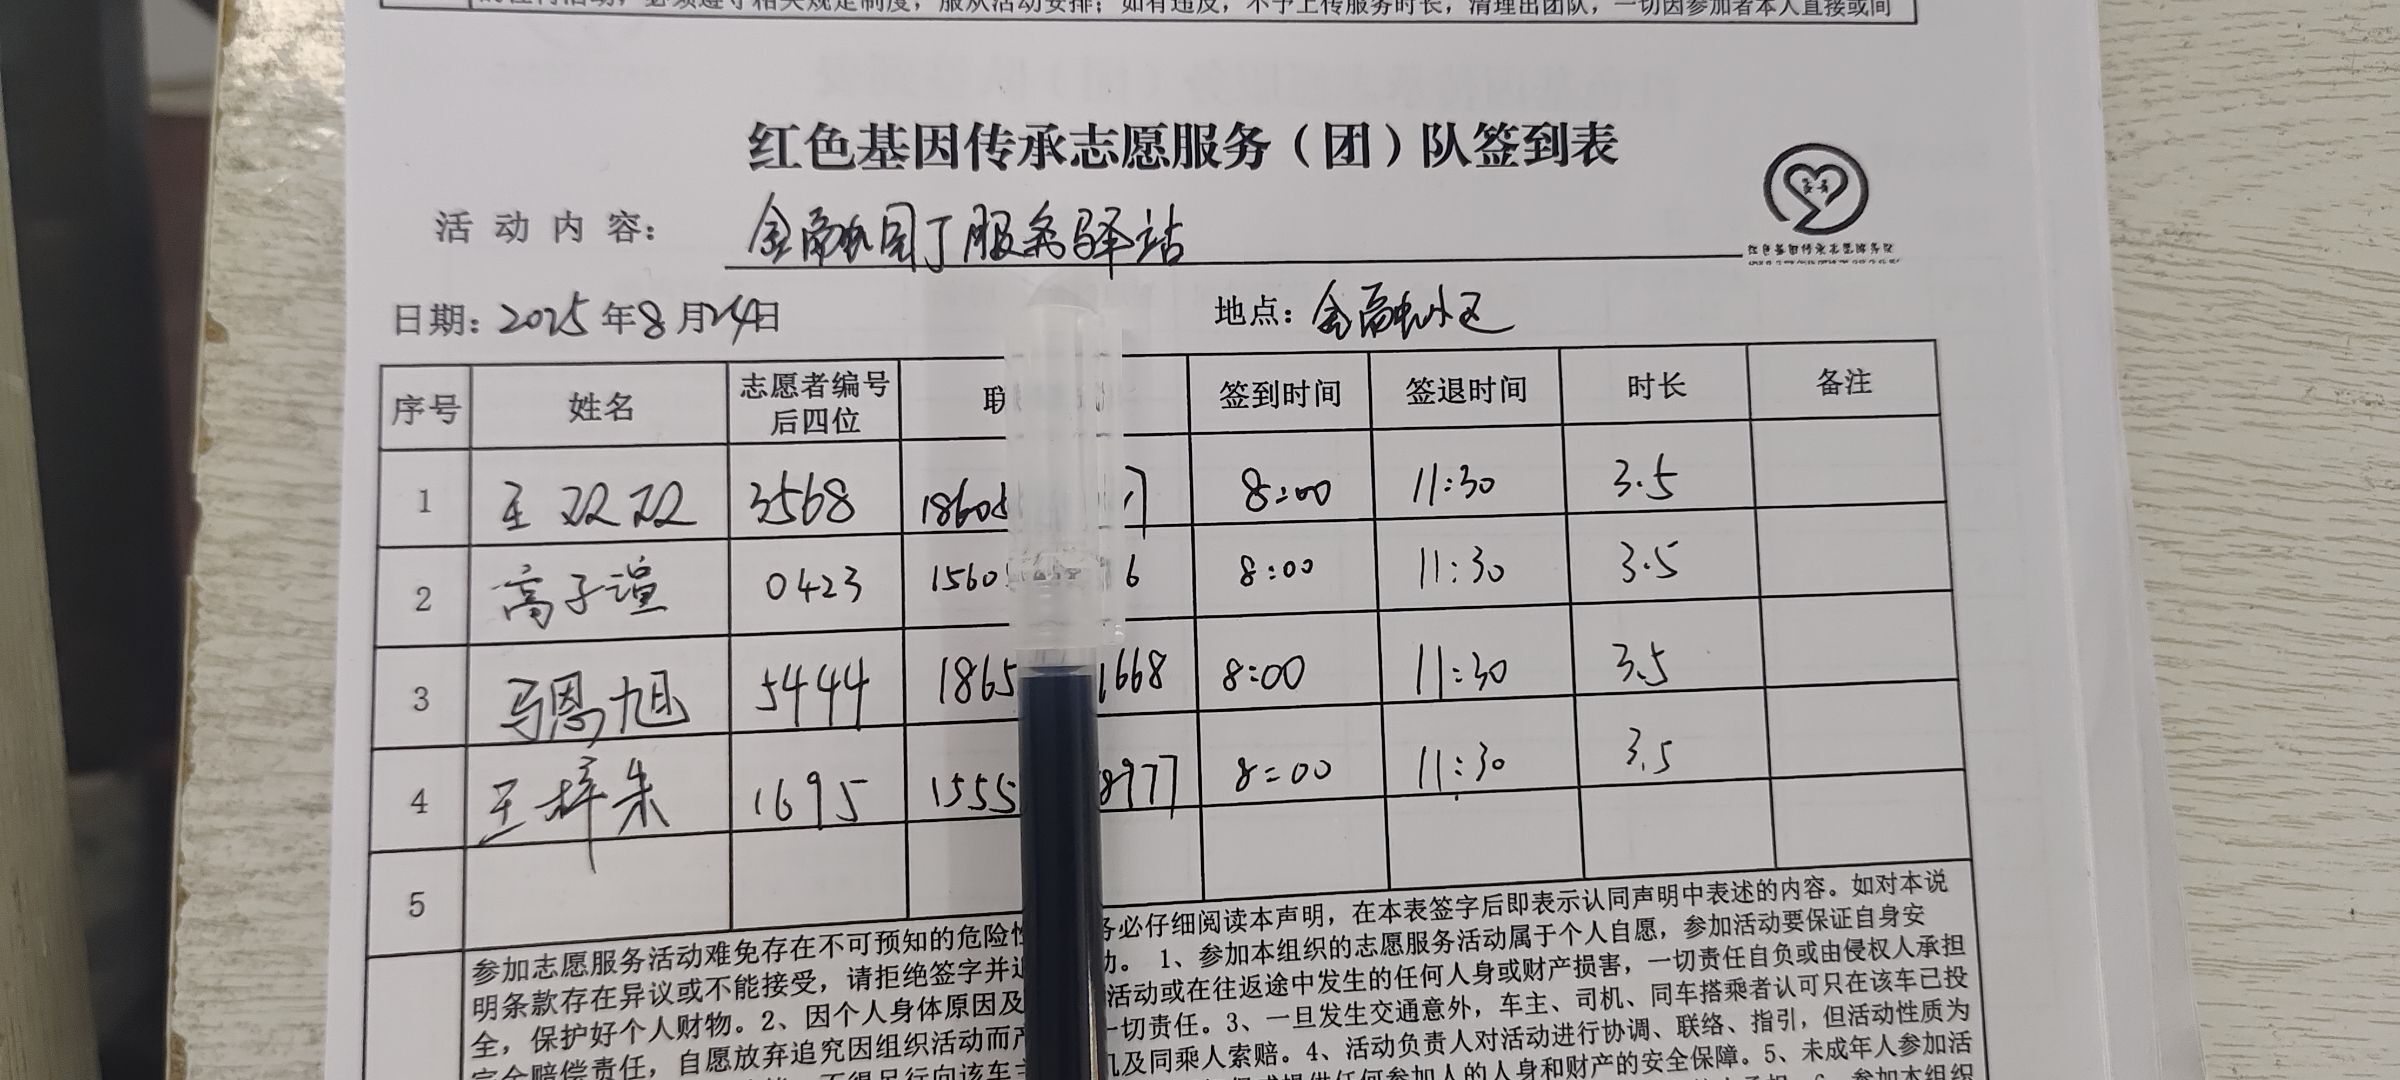 的任何活动，必须遵守相关规定制度，服从活动安排；如有违反，不予上传服务时长，清理出团队，一切因参加者本人直接或间
红色基因传承志愿服务（团）队签到表
活动内容： 金融园丁服务驿站
红色基因传承志愿服务队
日期：2025年8月24日 地点：金融小区
序号 姓名 志愿者编号后四位 联 签到时间 签退时间 时长 备注
1 王双双 3568 1860 7 8:00 11:30 3.5
2 高子谊 0423 1560 6 8:00 11:30 3.5
3 马恩旭 5444 1865 1668 8:00 11:30 3.5
4 王梓朱 1695 1555 8977 8:00 11:30 3.5
5
参加志愿服务活动难免存在不可预知的危险性 务必仔细阅读本声明，在本表签字后即表示认同声明中表述的内容。如对本说
明条款存在异议或不能接受，请拒绝签字并退 动。 1、参加本组织的志愿服务活动属于个人自愿，参加活动要保证自身安
全，保护好个人财物。2、因个人身体原因及 活动或在往返途中发生的任何人身或财产损害，一切责任自负或由侵权人承担
完全赔偿责任，自愿放弃追究因组织活动而产 一切责任。3、一旦发生交通意外，车主、司机、同车搭乘者认可只在该车已投
不得另行向该车主 机及同乘人索赔。4、活动负责人对活动进行协调、联络、指引，但活动性质为
提供任何参加人的人身和财产的安全保障。5、未成年人参加活
参加本组织